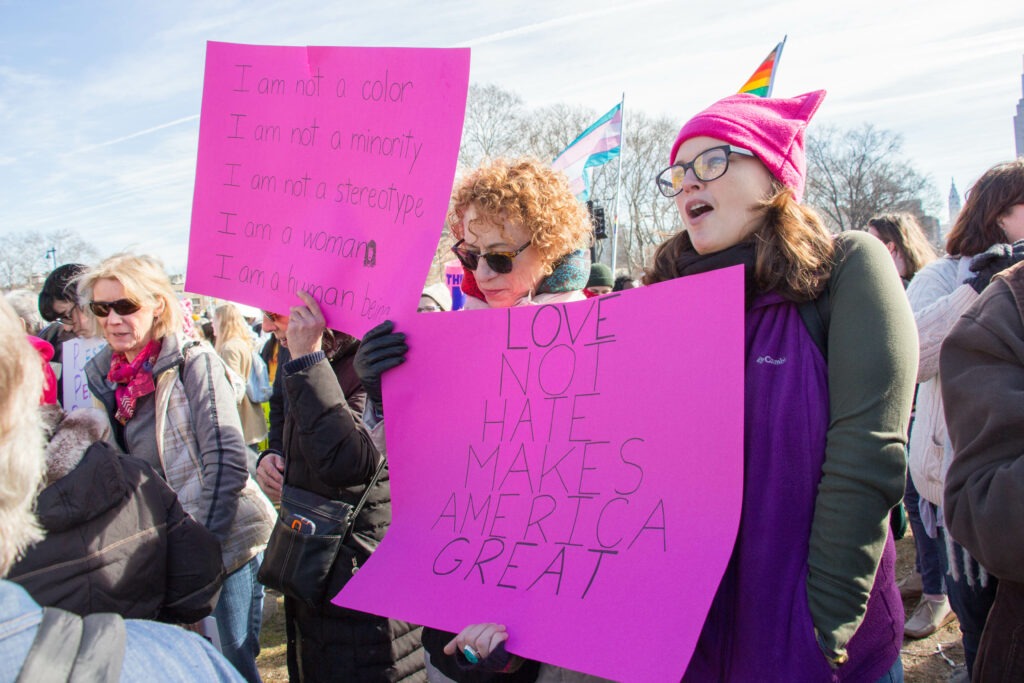 I am not a color
I am not a minority
I am not a stereotype
I am a woman
I am a human being
LOVE
NOT
HATE
MAKES
AMERICA
GREAT